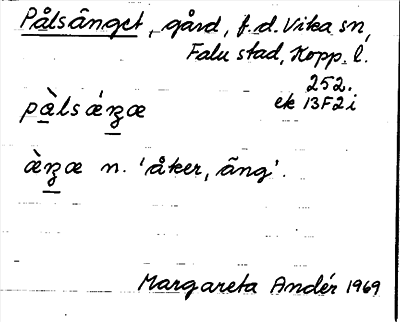 Pålsänget, gård, f.d. Vika sn,
Falu stad, Kopp. l.
252.
ek 13F2i
pàlsǽʒæ
æ̀ʒæ n. 'åker, äng'.
Margareta Andér 1969